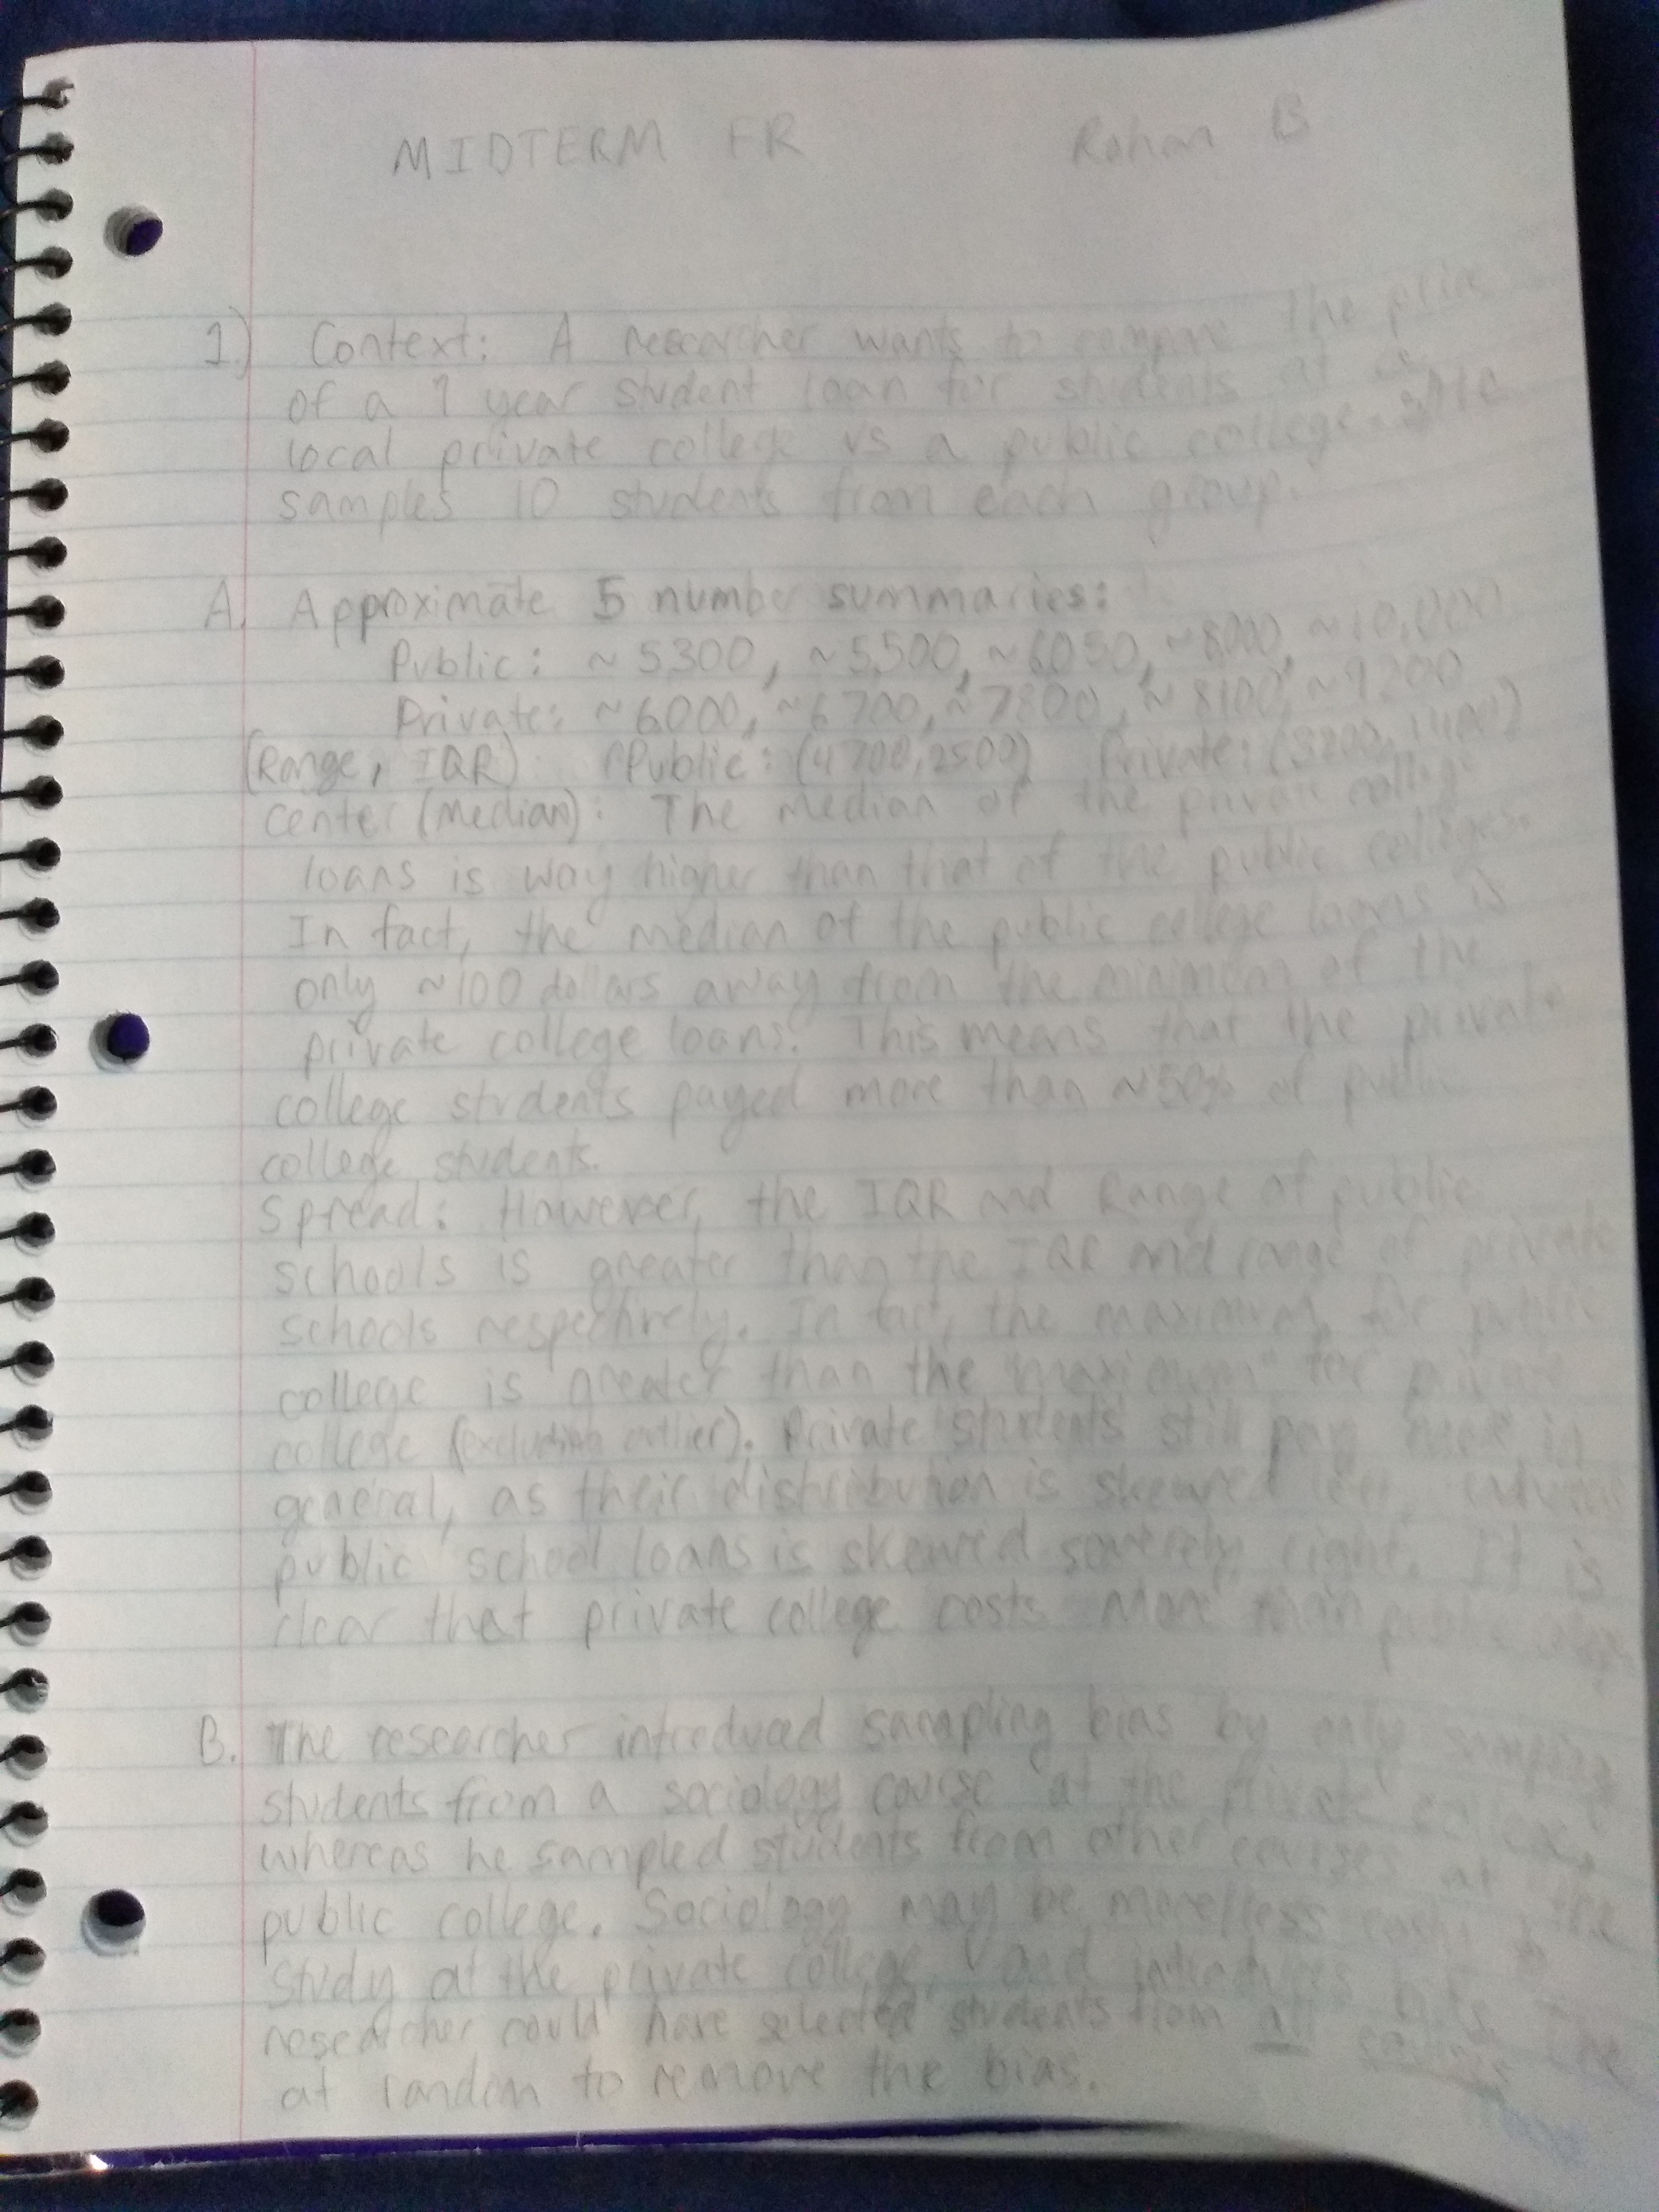 MIDTERM FR Rohan B
1.) Context: A researcher wants to compare the price
of a 1 year student loan for students at a
local private college vs a public college. He
samples 10 students from each group.
A. Approximate 5 number summaries:
Public: ~5300, ~5,500, ~6050, ~8000, ~10,000
Private: ~6000, ~6700, ~7800, ~8100, ~9200
(Range, IQR): Public: (4700, 2500) Private: (3200, 1400)
Center (Median): The Median of the private college
loans is way higher than that of the public colleges.
In fact, the median of the public college loans is
only ~100 dollars away from the minimum of the
private college loans. This means that the private
college students payed more than ~50% of public
college students.
Spread: However, the IQR and Range of public
schools is greater than the IQR and range of private
schools respectively. In fact, the maximum for public
college is greater than the "maximum" for private
college (excluding outlier). Private students still pay more in
general, as their distribution is skewed left, whereas
public school loans is skewed severely right. It is
clear that private college costs more than public
B. The researcher introduced sampling bias by only sampling
students from a sociology course at the private college,
whereas he sampled students from other courses at the
public college. Sociology may be more/less to
study at the private college, and introduces bias. The
researcher could have selected students from all courses
at random to remove the bias.